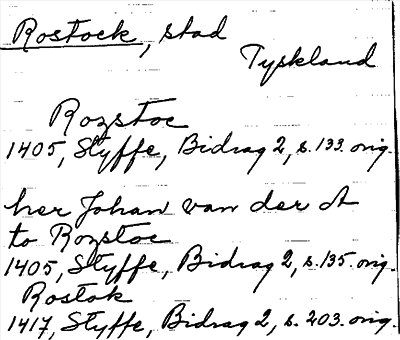 Rostock, stad
Tyskland
Rozstoc
1405, Styffe, Bidrag 2, s. 133. orig.
her Johan van der A
to Rozstoc
1405, Styffe, Bidrag 2, s. 135. orig.
Rostok
1417, Styffe, Bidrag 2, s. 203. orig.